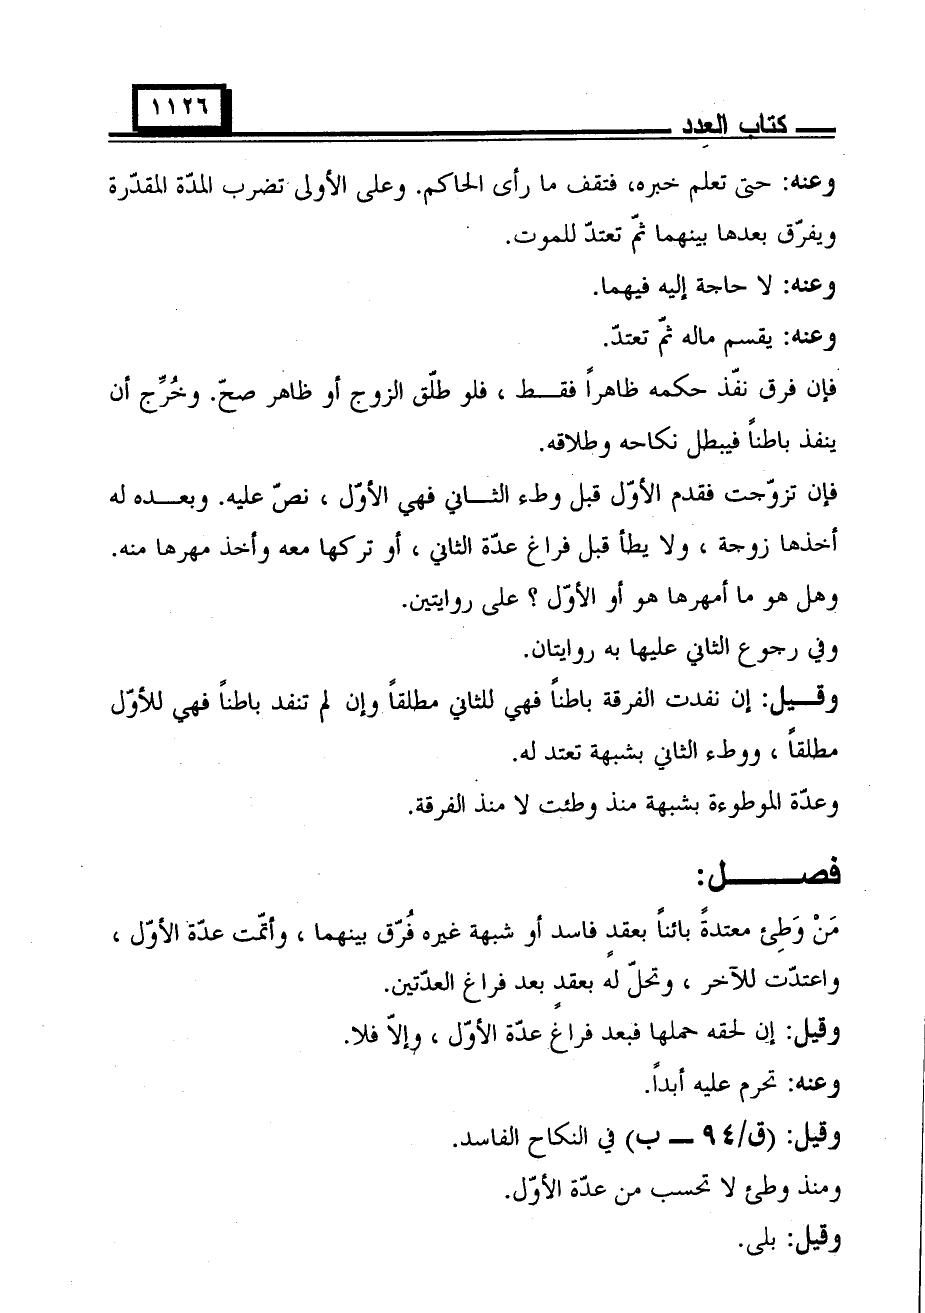 كتاب العدد
١١٢٦
وعنه: حتى تعلم خبره، فتقف ما رأى الحاكم. وعلى الأولى تضرب المدّة المقدّرة
ويفرّق بعدها بينهما ثمّ تعتدّ للموت.
وعنه: لا حاجة إليه فيهما.
وعنه: يقسم ماله ثمّ تعتدّ.
فإن فرق نفّذ حكمه ظاهراً فقـط ، فلو طلّق الزوج أو ظاهر صحّ. وخُرِّج أن
ينفذ باطناً فيبطل نكاحه وطلاقه.
فإن تزوّجت فقدم الأوّل قبل وطء الثـاني فهي الأوّل ، نصّ عليه. وبعـده له
أخذها زوجة ، ولا يطأ قبل فراغ عدّة الثاني ، أو تركها معه وأخذ مهرها منه.
وهل هو ما أمهرها هو أو الأوّل ؟ على روايتين.
وفي رجوع الثاني عليها به روايتان.
وقـيل: إن نفدت الفرقة باطناً فهي للثاني مطلقاً وإن لم تنفد باطناً فهي للأوّل
مطلقاً ، ووطء الثاني بشبهة تعتد له.
وعدّة الموطوءة بشبهة منذ وطئت لا منذ الفرقة.
فصــــل:
مَنْ وَطِئ معتدةً بائناً بعقدٍ فاسد أو شبهة غيره فُرّق بينهما ، وأتمّت عدّة الأوّل ،
واعتدّت للآخر ، وتحلّ له بعقدٍ بعد فراغ العدّتين.
وقيل: إن لحقه حملها فبعد فراغ عدّة الأوّل ، وإلاّ فلا.
وعنه: تحرم عليه أبداً.
وقيل: (ق/٩٤ – ب) في النكاح الفاسد.
ومنذ وطئ لا تحسب من عدّة الأوّل.
وقيل: بلى.